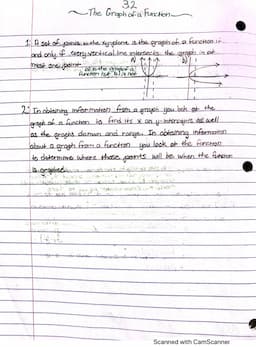 3.2
The Graph of a Function
1. A set of points in the xy plane is the graph of a function if
and only if every vertical line intersects the graph in at
most one point.
a) b)
a) is the graph of a
function but b) is not
2. In obtaining information from a graph you look at the
graph of a function to find its x and y-intercepts as well
as the graphs domain and range. In obtaining information
about a graph from a function you look at the function
to determine where those points will be when the function
is graphed.
Scanned with CamScanner